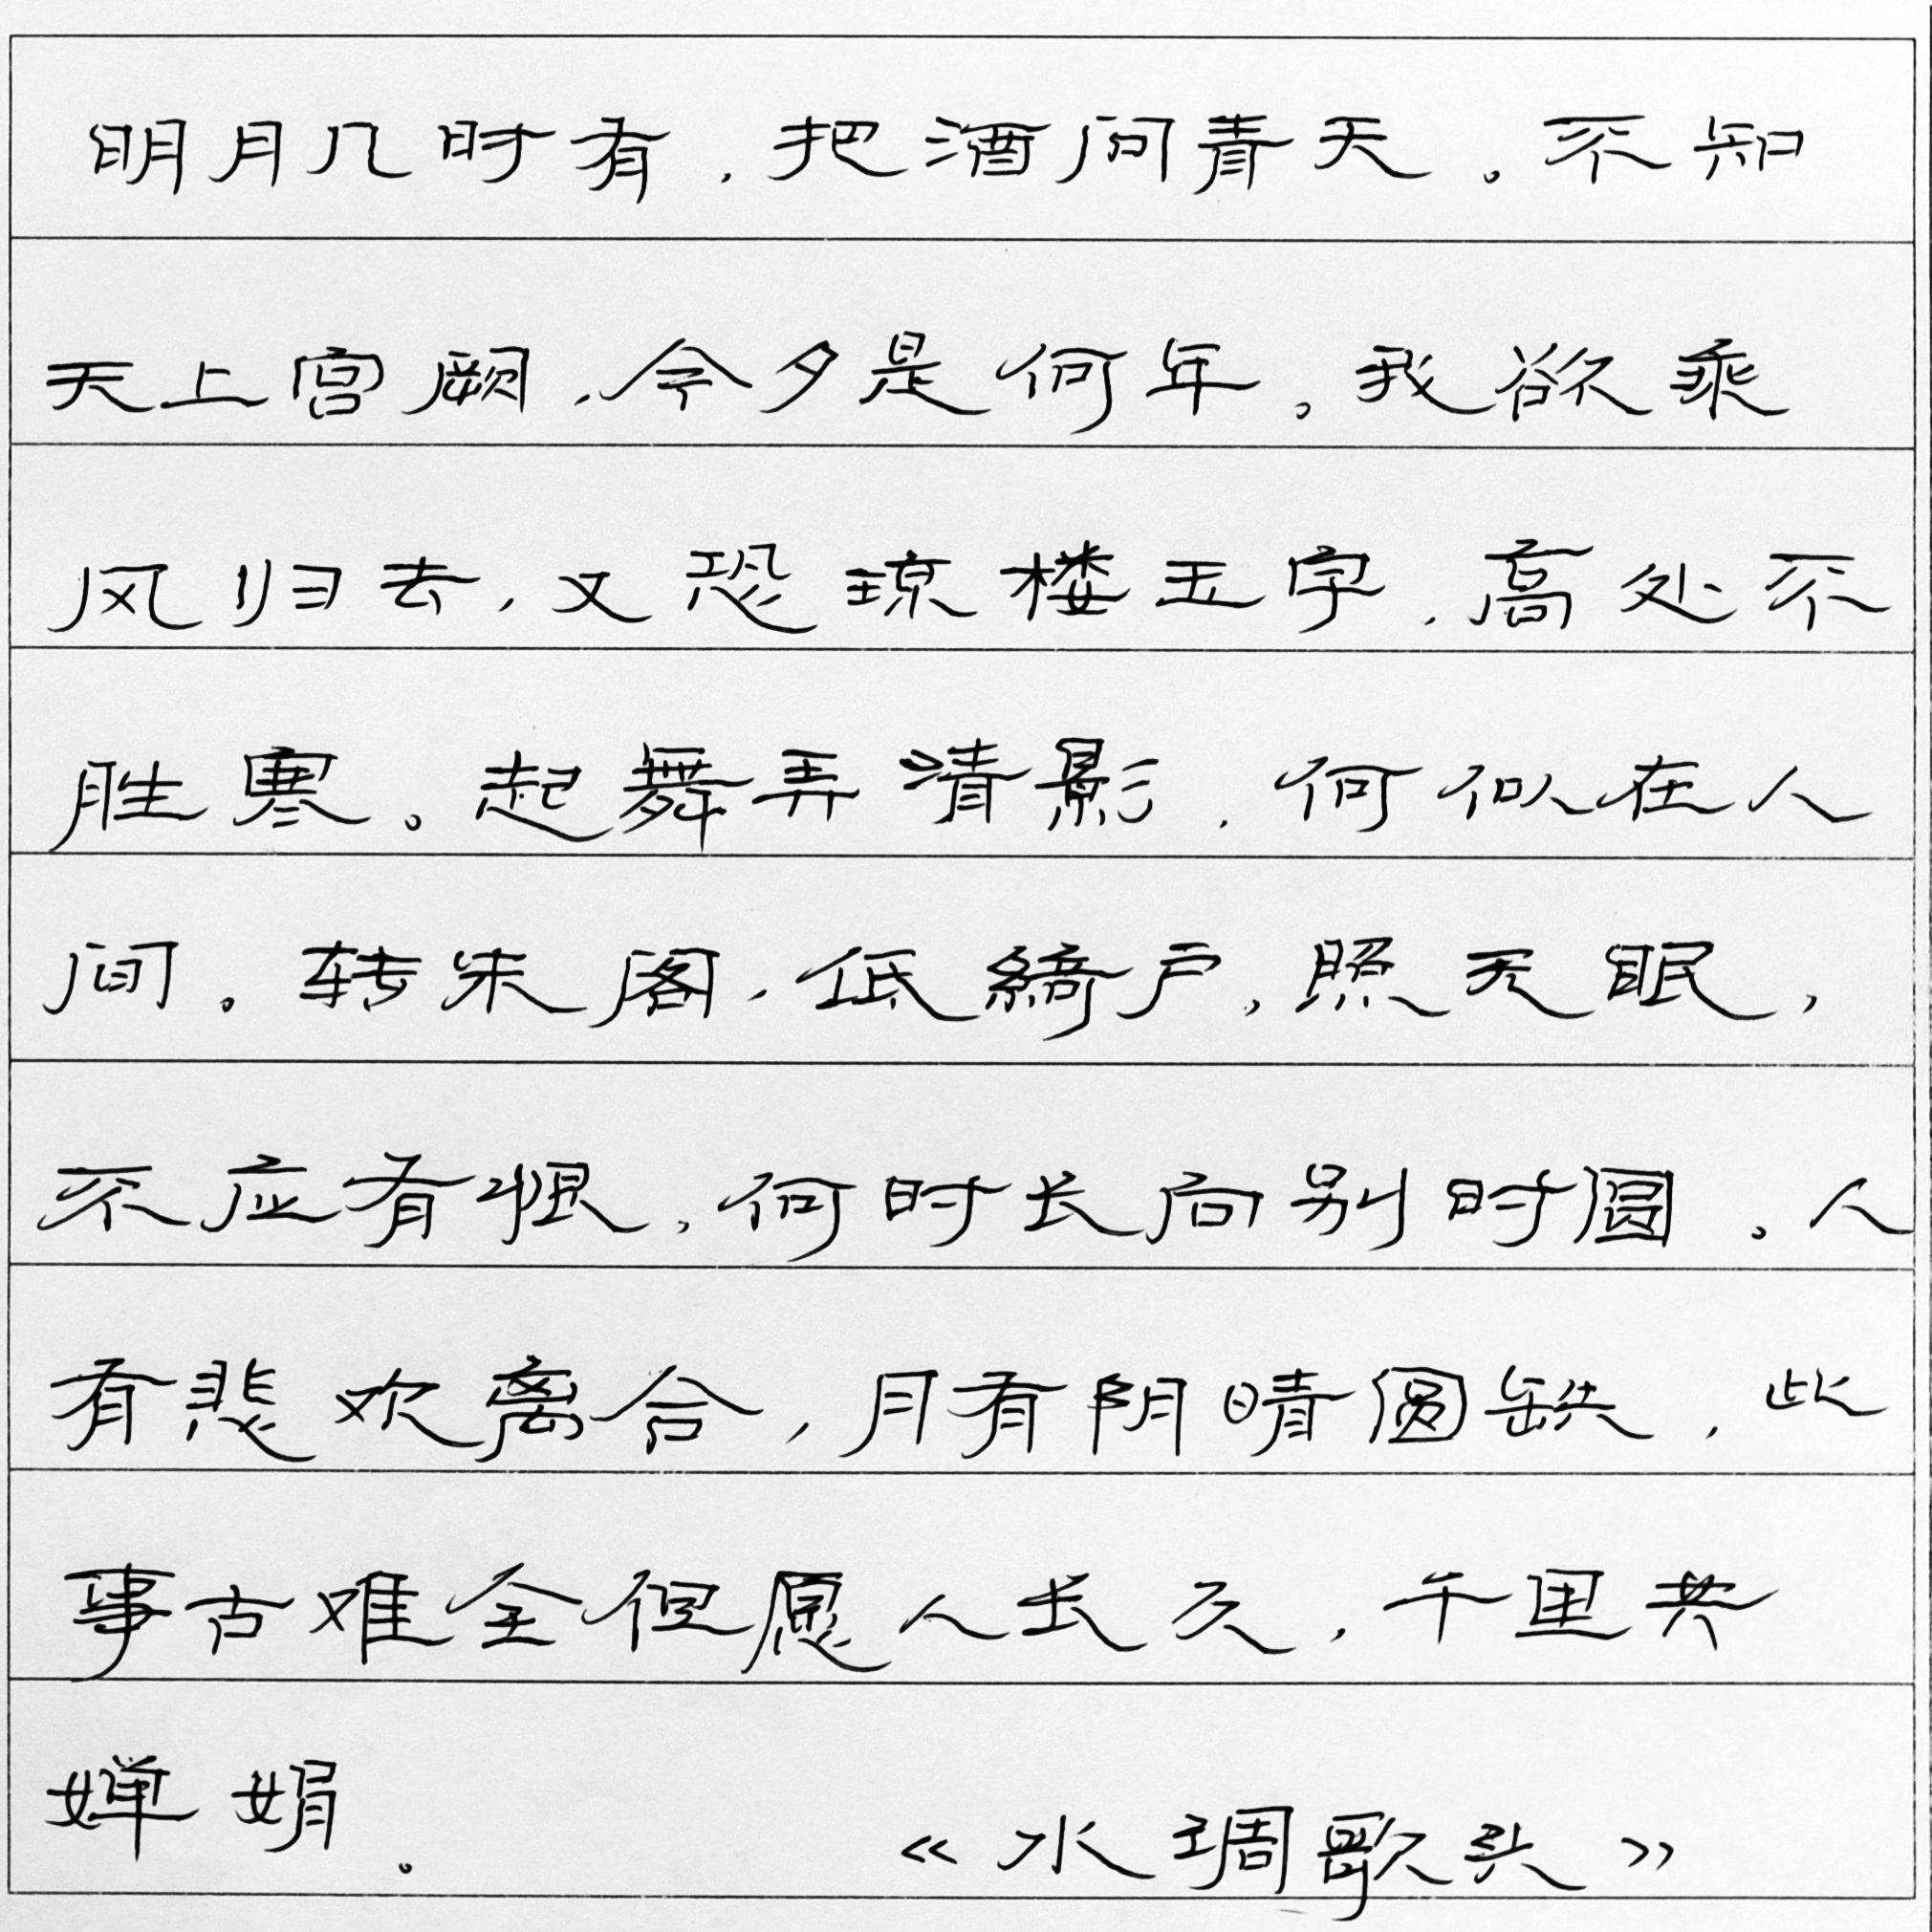 明月几时有，把酒问青天。不知
天上宫阙，今夕是何年。我欲乘
风归去，又恐琼楼玉宇，高处不
胜寒。起舞弄清影，何似在人
间。转朱阁，低绮户，照无眠，
不应有恨，何时长向别时圆。人
有悲欢离合，月有阴晴圆缺，此
事古难全但愿人长久，千里共
婵娟。
《水调歌头》